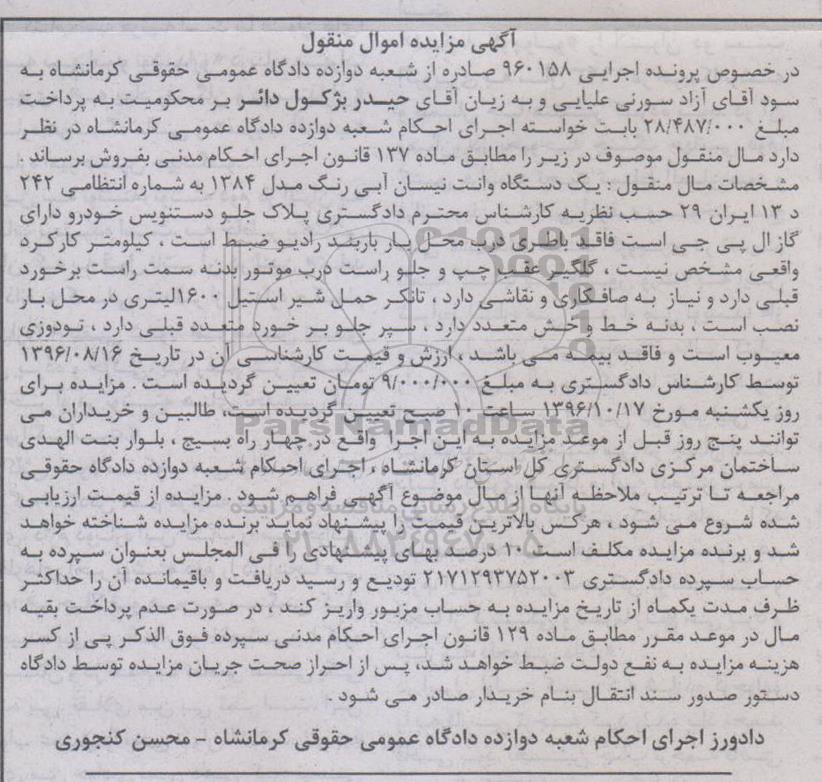 آگهی مزایده اموال منقول
در خصوص پرونده اجرایی ۹۶۰۱۵۸ صادره از شعبه دوازده دادگاه عمومی حقوقی کرمانشاه به
سود آقای آزاد سورنی علیایی و به زیان آقای حیدر بژکول دائر بر محکومیت به پرداخت
مبلغ ۲۸/۴۸۷/۰۰۰ بابت خواسته اجرای احکام شعبه دوازده دادگاه عمومی کرمانشاه در نظر
دارد مال منقول موصوف در زیر را مطابق ماده ۱۳۷ قانون اجرای احکام مدنی بفروش برساند .
مشخصات مال منقول : یک دستگاه وانت نیسان آبی رنگ مدل ۱۳۸۴ به شماره انتظامی ۲۴۲
د ۱۳ ایران ۲۹ حسب نظریه کارشناس محترم دادگستری پلاک جلو دستنویس خودرو دارای
گاز ال پی جی است فاقد باطری درب محل بار باربند رادیو ضبط است ، کیلومتر کارکرد
واقعی مشخص نیست ، گلگیر عقب چپ و جلو راست درب موتور بدنه سمت راست برخورد
قبلی دارد و نیاز به صافکاری و نقاشی دارد ، تانکر حمل شیر استیل ۱۶۰۰لیتری در محل بار
نصب است ، بدنه خط و خش متعدد دارد ، سپر جلو بر خورد متعدد قبلی دارد ، تودوزی
معیوب است و فاقد بیمه می باشد ، ارزش و قیمت کارشناسی آن در تاریخ ۱۳۹۶/۰۸/۱۶
توسط کارشناس دادگستری به مبلغ ۹/۰۰۰/۰۰۰ تومان تعیین گردیده است . مزایده برای
روز یکشنبه مورخ ۱۳۹۶/۱۰/۱۷ ساعت ۱۰ صبح تعیین گردیده است، طالبین و خریداران می
توانند پنج روز قبل از موعد مزایده به این اجرا واقع در چهار راه بسیج ، بلوار بنت الهدی
ساختمان مرکزی دادگستری کل استان کرمانشاه ، اجرای احکام شعبه دوازده دادگاه حقوقی
مراجعه تا ترتیب ملاحظه آنها از مال موضوع آگهی فراهم شود . مزایده از قیمت ارزیابی
شده شروع می شود ، هرکس بالاترین قیمت را پیشنهاد نماید برنده مزایده شناخته خواهد
شد و برنده مزایده مکلف است ۱۰ درصد بهای پیشنهادی را فی المجلس بعنوان سپرده به
حساب سپرده دادگستری ۲۱۷۱۲۹۳۷۵۲۰۰۳ تودیع و رسید دریافت و باقیمانده آن را حداکثر
ظرف مدت یکماه از تاریخ مزایده به حساب مزبور واریز کند ، در صورت عدم پرداخت بقیه
مال در موعد مقرر مطابق ماده ۱۲۹ قانون اجرای احکام مدنی سپرده فوق الذکر پی از کسر
هزینه مزایده به نفع دولت ضبط خواهد شد، پس از احراز صحت جریان مزایده توسط دادگاه
دستور صدور سند انتقال بنام خریدار صادر می شود .
دادورز اجرای احکام شعبه دوازده دادگاه عمومی حقوقی کرمانشاه - محسن کنجوری
ParsNamadData